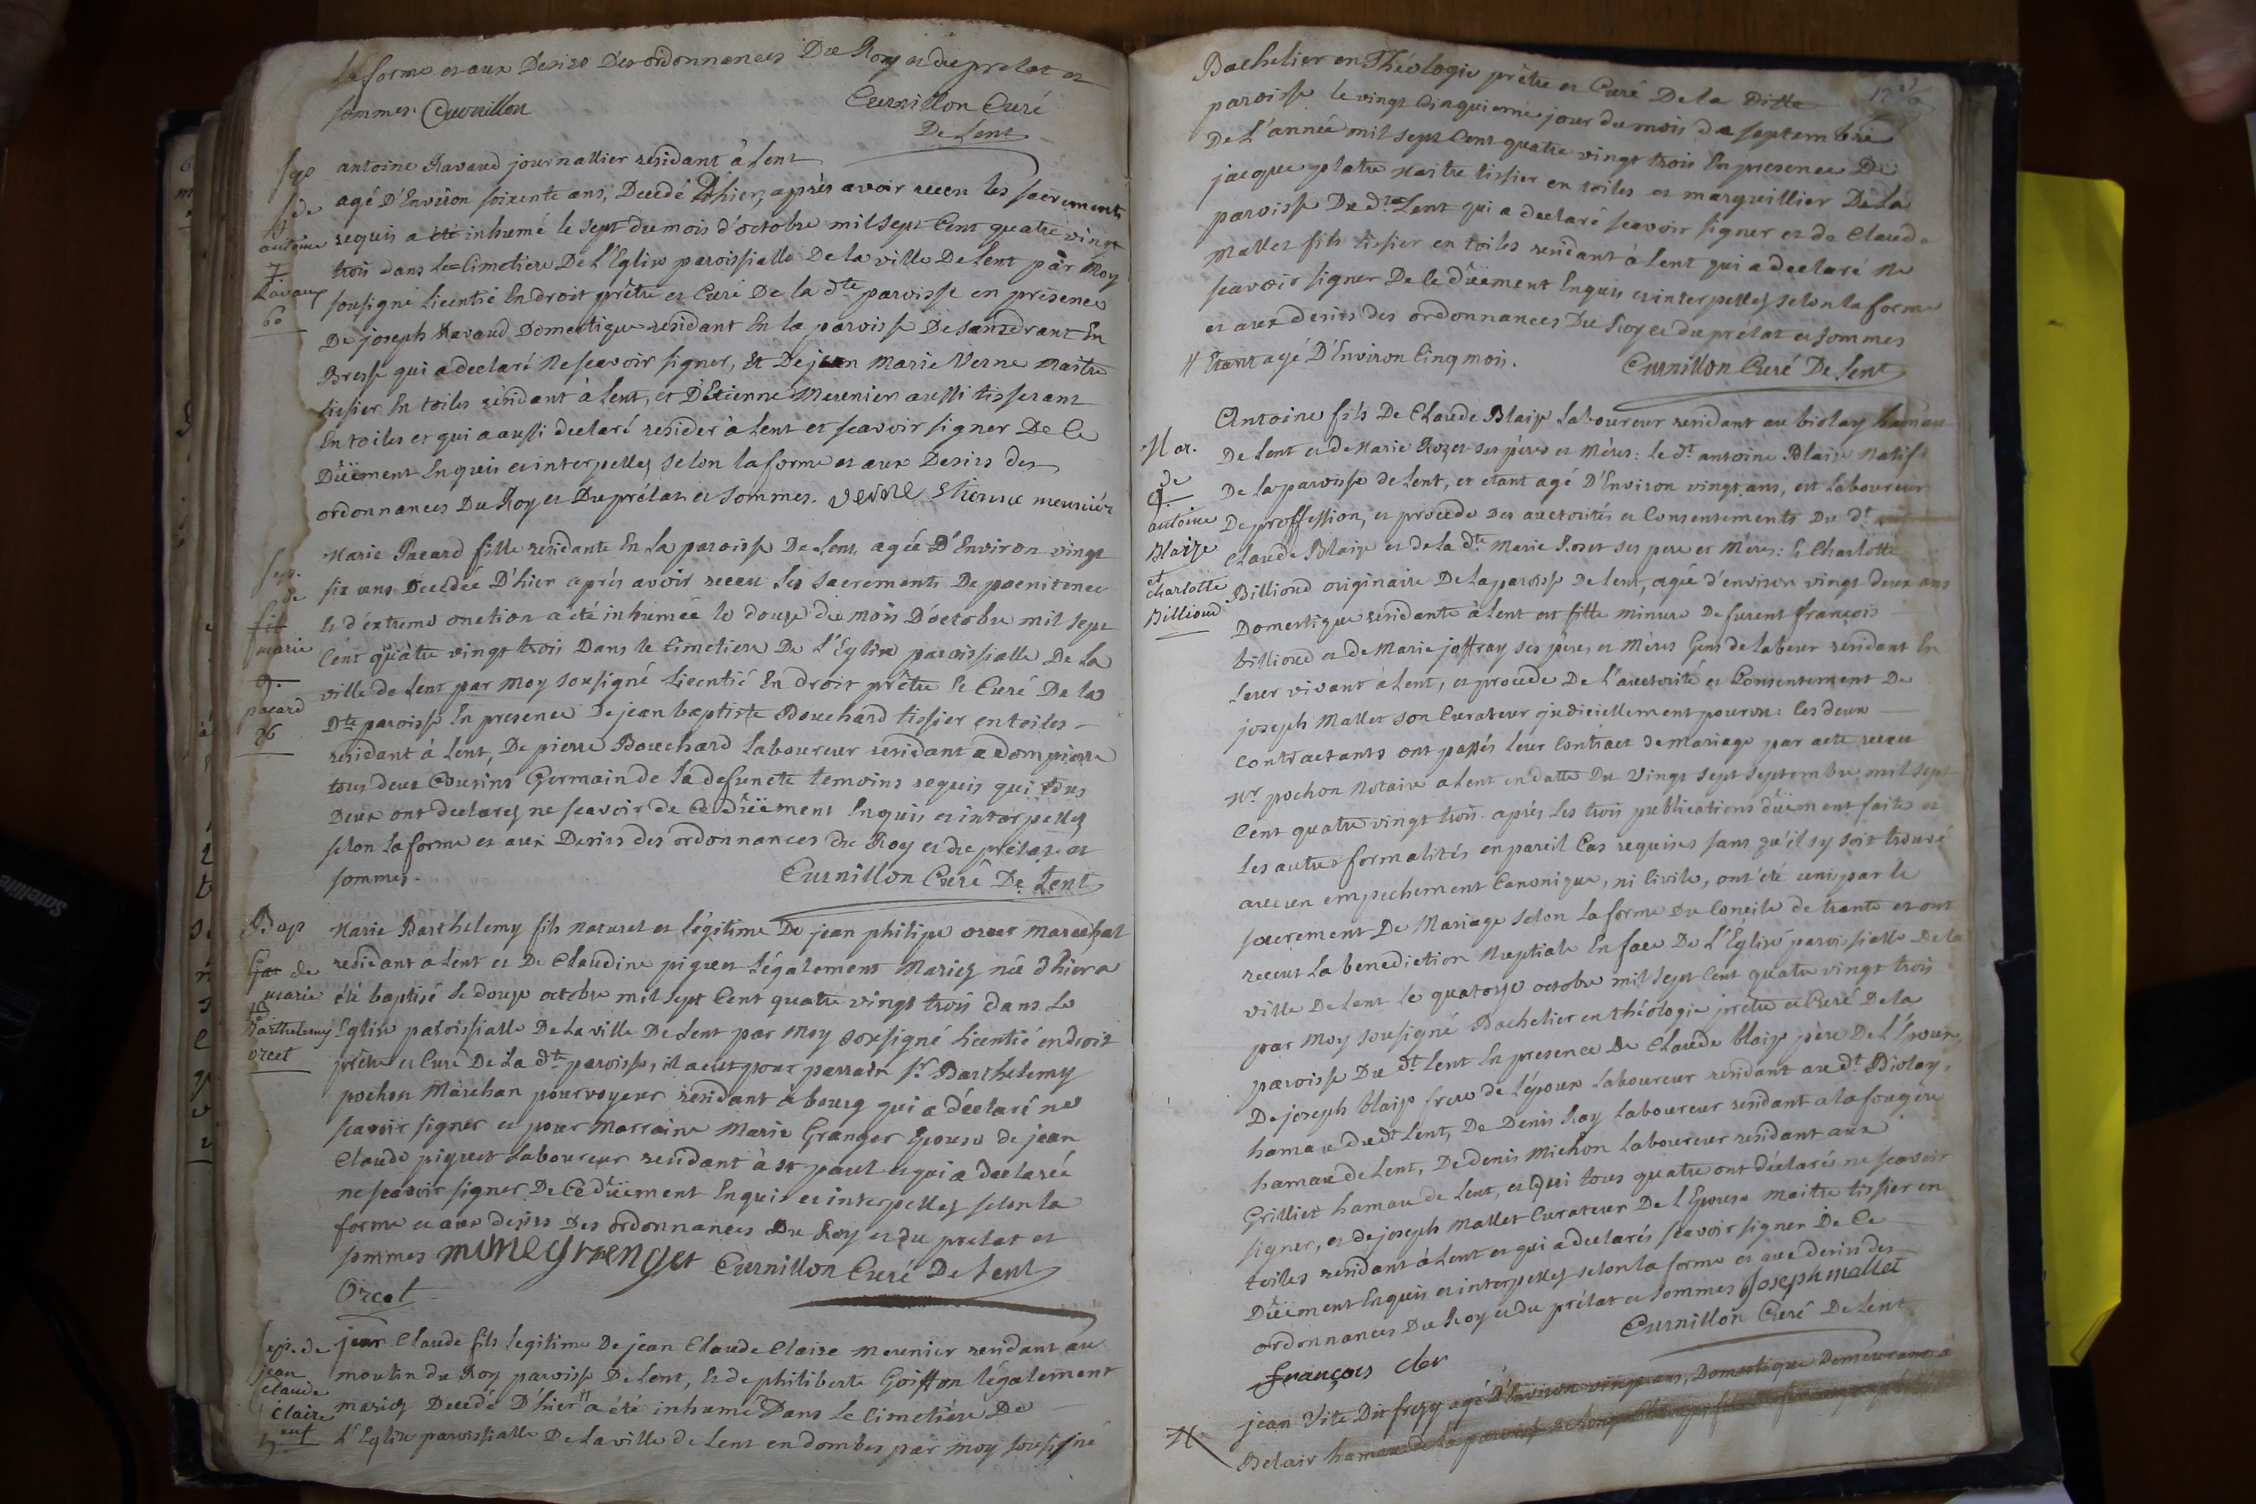 la forme et aux Desirs Des ordonnances Du Roy et du prelat et
sommes. Cuvrillon Curnillon Curé
De Lent
Sep
de
antoine
Ravaux
60
antoine Ravaud journallier residant à Lent
agé D'Environ soixente ans, Decedé D'hier, après avoir receu les sacrements
requis a été inhumé le sept du mois d'octobre mil sept Cent quatre vingt
trois dans Le Cimetiere De L'Eglise paroissialle De la ville De Lent par Moy
sousigné Licentié En droit prêtre et Curé De la dte paroisse en présence
De joseph Ravaud Domestique residant En la paroisse De sandrant En
Bresse qui a declaré Ne scavoir signer, Et De jean Marie Verne Maitre
tissier En toiles residant à Lent, et D'Etienne Meunier aussi tisserant
En toiles et qui a aussi declaré resider à Lent et scavoir signer De Ce
Düement Enquis et interpellez selon la forme et aux Desirs des
ordonnances Du Roy et Du prélat et sommes. verne Etienne meunier
Sep.
de
fie
marie
pacard
26
Marie Pacard fille residante En La paroisse De Lent, agée D'Environ vingt
six ans Decedée D'hier après avoir receu Les sacrements De poenitence
Et d'extreme onction a été inhumée le douze du mois D'octobre mil sept
Cent quatre vingt trois Dans le Cimetiere De L'Eglise paroissialle De La
ville de Lent par Moy sousigné Licentié En droit prêtre Et Curé De la
Dte paroisse En presence De jean baptiste Bouchard tissier en toiles
residant à Lent, De pierre Bouchard Laboureur residant a dompierre
tous deux Cousins Germain de la defuncte temoins requis qui tous
Deux ont declarez ne scavoir de Ce Düement Enquis et interpellez
selon La forme et aux Desirs des ordonnances du Roy et du prélat et
sommes. Curnillon Curé De Lent
Bap
Gar de
marie
Barthelemy
orcet
Marie Barthelemy fils naturel et légitime De jean philipe orcet marechal
residant a Lent et De Claudine piquet Légalement Mariez né d'hier a
été baptisé Le douze octobre mil sept Cent quatre vingt trois dans Le
Eglise paroissialle De La ville De Lent par Moy sousigné Licentié en droit
prêtre et Curé De La dte paroisse, il a eut pour parrain Sr Barthelemy
pochon Marchan pourvoyeur residant a bourg qui a déclaré ne
scavoir signer et pour Marraine Marie Granger Epouse de jean
Claude piquet Laboureur residant à st paul et qui a declarée
ne scavoir signer De Ce düement Enquis et interpellez selon la
forme et aux desirs Des ordonnances Du Roy et du prelat et
sommes Curnillon Curé De Lent
Orcet
Sep. de
jean
Claude
claire
jean Claude fils legitime De jean Claude Claire Meunier residant au
moulin du Roy paroisse De Lent, Et de philiberte Goiffon légalement
mariez Decedé D'hier # a été inhumé Dans Le Cimetière De
L'Eglise paroissialle De La ville de Lent en dombes par moy sousigné
Bachelier en Théologie prêtre et Curé De la ditte
paroisse le vingt Cinquieme jour du mois de septembre
De L'année mil sept Cent quatre vingt trois En presence De
jacque golatre Maitre tissier en toiles et marguillier De La
paroisse Du dt Lent qui a declaré scavoir signer et de Claude
Mallet fils tissier en toiles residant à Lent qui a declaré Ne
scavoir signer De Ce düement Enquis et interpellez selon la forme
et aux desirs des ordonnances Du Roy et du prélat et sommes
# Etant agé D'Environ Cinq mois. Curnillon Curé De Lent
Mar.
de
antoine
Blaize
et
charlotte
Billioud
Antoine fils De Claude Blaise Laboureur residant au biolay hameau
De Lent et de Marie Rozet ses pères et Mères: Le dt antoine Blaise Natif
De la paroisse de Lent, et etant agé D'Environ vingt ans, est Laboureur
De proffession, et procede Des auctorités et Consentements Du dt
Claude Blaise et de la dte Marie Rozet ses pere et Mères: Et Charlotte
Billioud originaire De la paroisse de Lent, agée d'environ vingt deux ans
Domestique residante à Lent est fille mineure De furent françois
billioud et de Marie joffray ses pères et Mères Gens de labeur residant En
Leur vivant à Lent, et procede De L'auctorité et Consentement De
joseph Mallet son Curateur judiciellement pourvu: Les deux
Contractants ont passés leur Contract de mariage par acte receu
Mr pochon Notaire a Lent en datte Du Vingt sept septembre mil sept
Cent quatre vingt trois. après Les trois publications düement faite et
Les autres formalités en pareil Cas requises sans qu'il sy soit trouvé
aucun empechement Canonique, ni Civile, ont été uni par le
sacrement De Mariage selon La forme Du Concile de trante et ont
receu La benediction Nuptiale En face De L'Eglise paroissialle De la
ville De Lent Le quatorze octobre mil sept Cent quatre vingt trois
par Moy sousigné Bachelier en théologie prêtre et Curé De la
paroisse Du dt Lent En presence De Claude blaise père De L'Epoux,
De joseph blaise frere de L'époux Laboureur residant au dt Biolay,
hamau du dt Lent, De Denis Roy Laboureur residant a la fougere
hamau de Lent, De denis Michon Laboureur residant aux
Grilliet hamau de Lent, et Qui tous quatre ont déclarés ne scavoir
signer, et de joseph Mallet Curateur De L'Epouse maitre tissier en
toiles residant à Lent et qui a declarés scavoir signer De Ce
Düement Enquis et interpellez selon la forme et aux desirs des
ordonnances Du Roy et du prélat et sommes Joseph mallet
françois Curnillon Curé De Lent
jean Vite Dit frezy agé D'Environ vingt ans, Domestique Demeurant a
Belair hamau de la paroisse